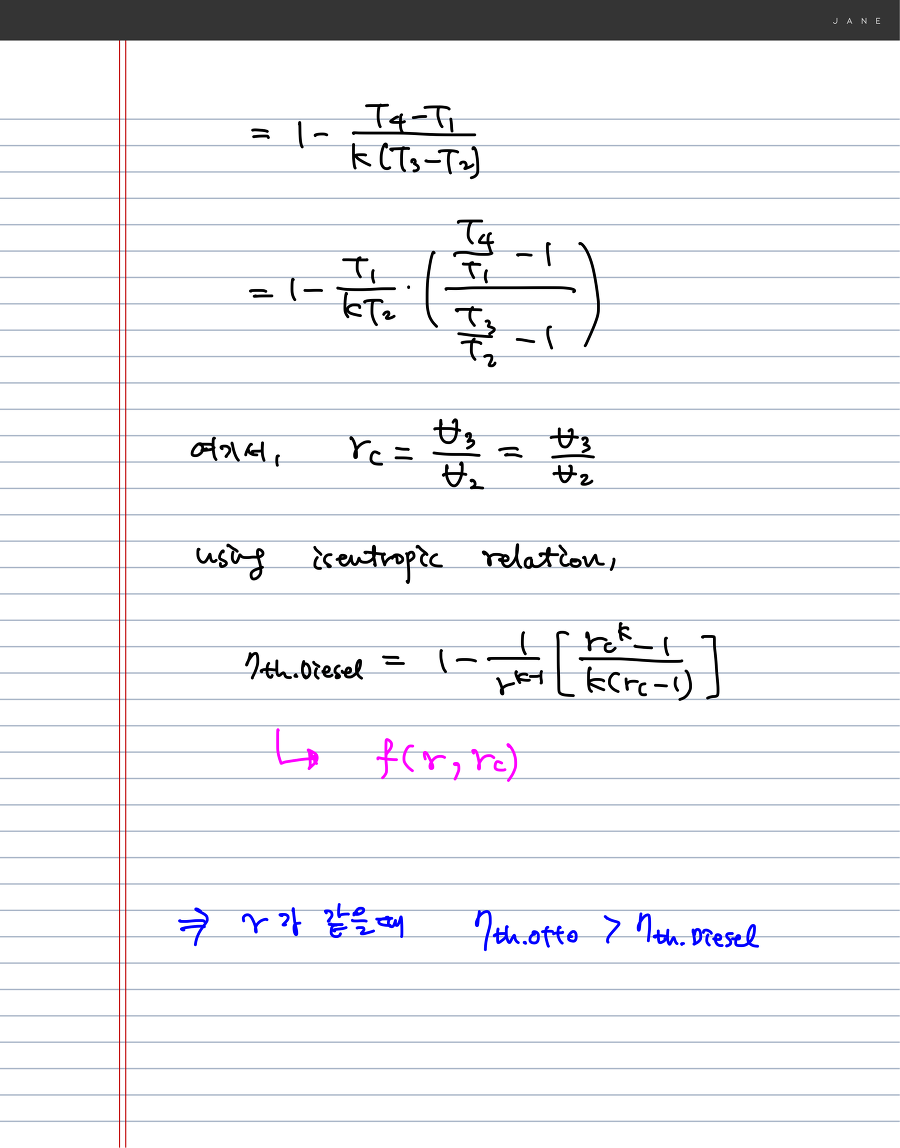 JANE
= 1 - \frac{T_4 - T_1}{k(T_3 - T_2)}
= 1 - \frac{T_1}{kT_2} \cdot \left( \frac{\frac{T_4}{T_1} - 1}{\frac{T_3}{T_2} - 1} \right)
여기서, r_c = \frac{V_3}{V_2} = \frac{v_3}{v_2}
using isentropic relation,
η_{th.Diesel} = 1 - \frac{1}{r^{k-1}} \left[ \frac{r_c^k - 1}{k(r_c - 1)} \right]
↳ f(r, r_c)
⇒ r가 같을때 η_{th.otto} > η_{th.Diesel}